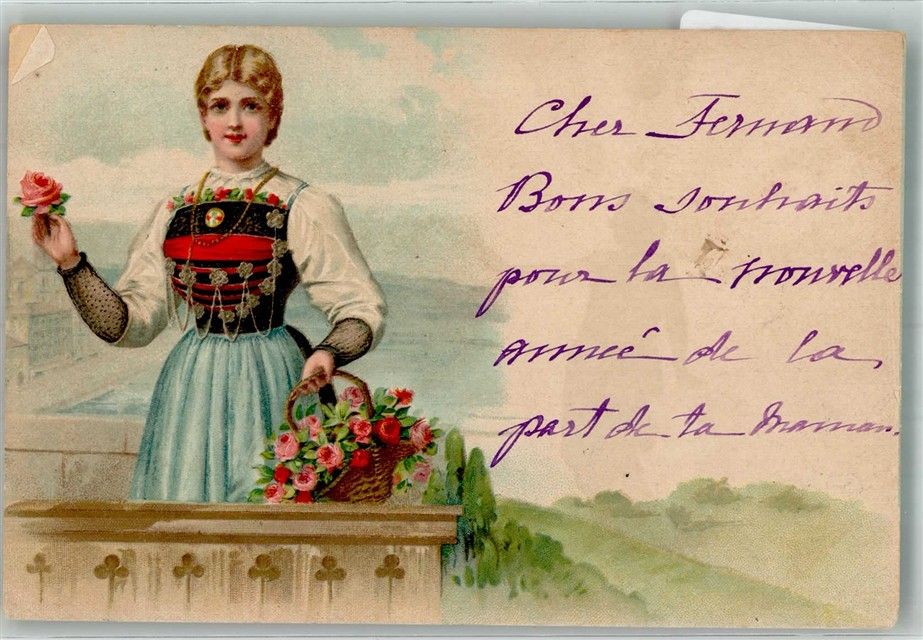 Cher Fernand
Bons souhaits
pour la nouvelle
année de la
part de ta maman.